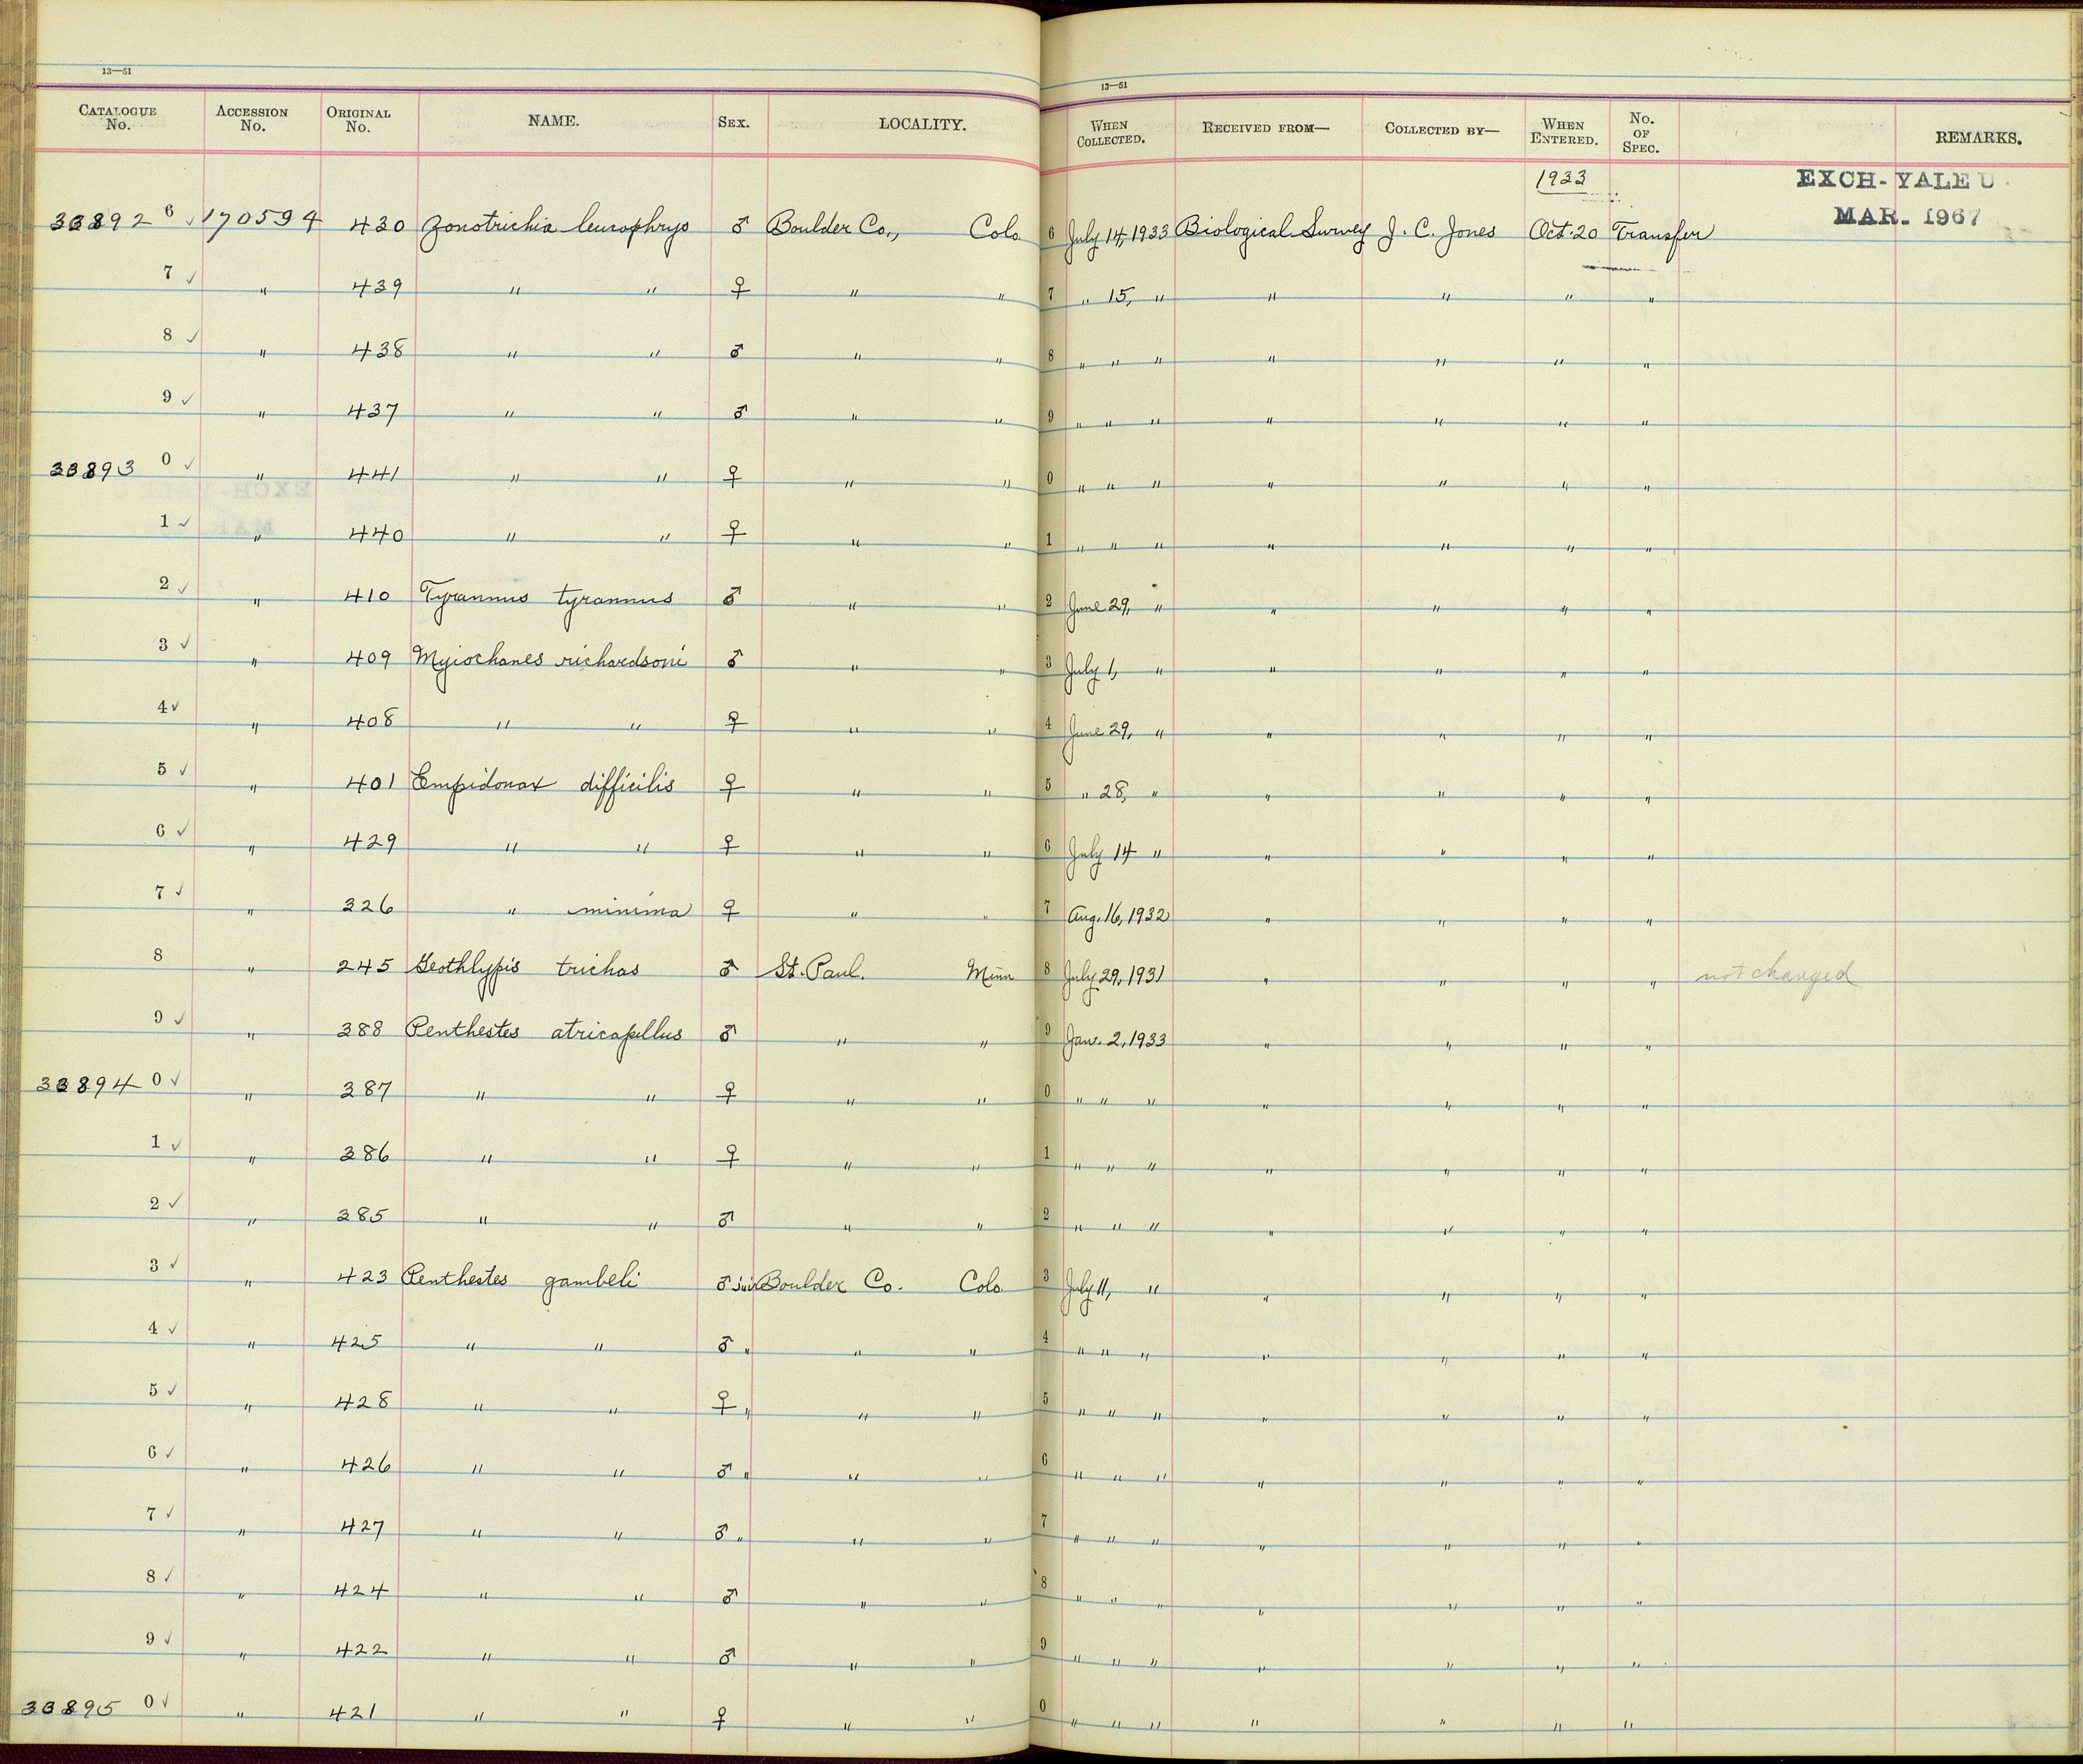 13—51
CATALOGUE No. ACCESSION No. ORIGINAL No. NAME. SEX. LOCALITY.
13—51
WHEN COLLECTED. RECEIVED FROM— COLLECTED BY— WHEN ENTERED. No. OF SPEC. REMARKS.
1933 EXCH-YALE U.
MAR. 1967
33892 6 ✓ 170594 430 Zonotrichia leucophrys ♂ Boulder Co., Colo 6 July 14, 1933 Biological Survey J. C. Jones Oct. 20 Transfer
7 ✓ " 439 " " ♀ " " 7 " 15, " " " " "
8 ✓ " 438 " " ♂ " " 8 " " " " " " "
9 ✓ " 437 " " ♂ " " 9 " " " " " " "
33893 0 ✓ " 441 " " ♀ " " 0 " " " " " " "
1 ✓ " 440 " " ♀ " " 1 " " " " " " "
2 ✓ " 410 Tyrannus tyrannus ♂ " " 2 June 29, " " " " "
3 ✓ " 409 Myiochanes richardsoni ♂ " " 3 July 1, " " " " "
4 ✓ " 408 " " ♀ " " 4 June 29, " " " " "
5 ✓ " 401 Empidonax difficilis ♀ " " 5 " 28, " " " " "
6 ✓ " 429 " " ♀ " " 6 July 14 " " " " "
7 ✓ " 326 " minima ♀ " " 7 Aug. 16, 1932 " " " "
8 " 245 Geothlypis trichas ♂ St. Paul. Minn 8 July 29, 1931 " " " " not changed
9 ✓ " 388 Penthestes atricapillus ♂ " " 9 Jan. 2, 1933 " " " "
33894 0 ✓ " 387 " " ♀ " " 0 " " " " " " "
1 ✓ " 386 " " ♀ " " 1 " " " " " " "
2 ✓ " 385 " " ♂ " " 2 " " " " " " "
3 ✓ " 423 Penthestes gambeli ♂ juv Boulder Co. Colo 3 July 11, " " " " "
4 ✓ " 425 " " ♂ " " " 4 " " " " " " "
5 ✓ " 428 " " ♀ " " " 5 " " " " " " "
6 ✓ " 426 " " ♂ " " " 6 " " " " " " "
7 ✓ " 427 " " ♂ " " " 7 " " " " " " "
8 ✓ " 424 " " ♂ " " 8 " " " " " " "
9 ✓ " 422 " " ♂ " " 9 " " " " " " "
33895 0 ✓ " 421 " " ♀ " " 0 " " " " " " "